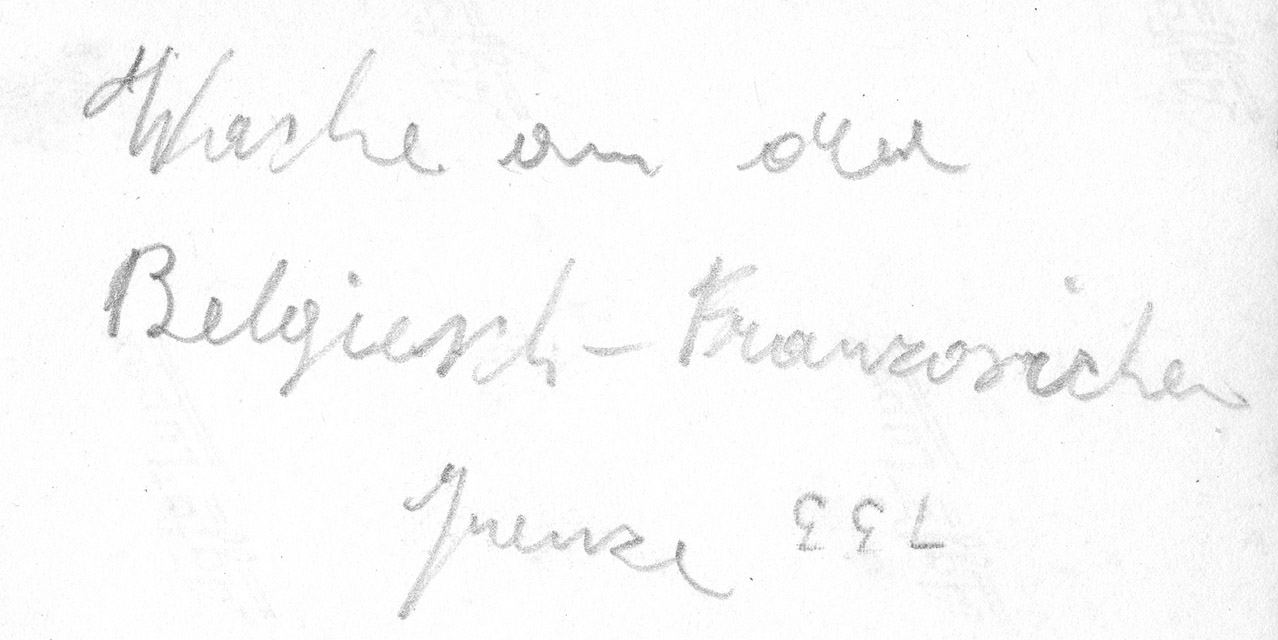 Wache an der
Belgiesch - Franzosichen
Grenze 733